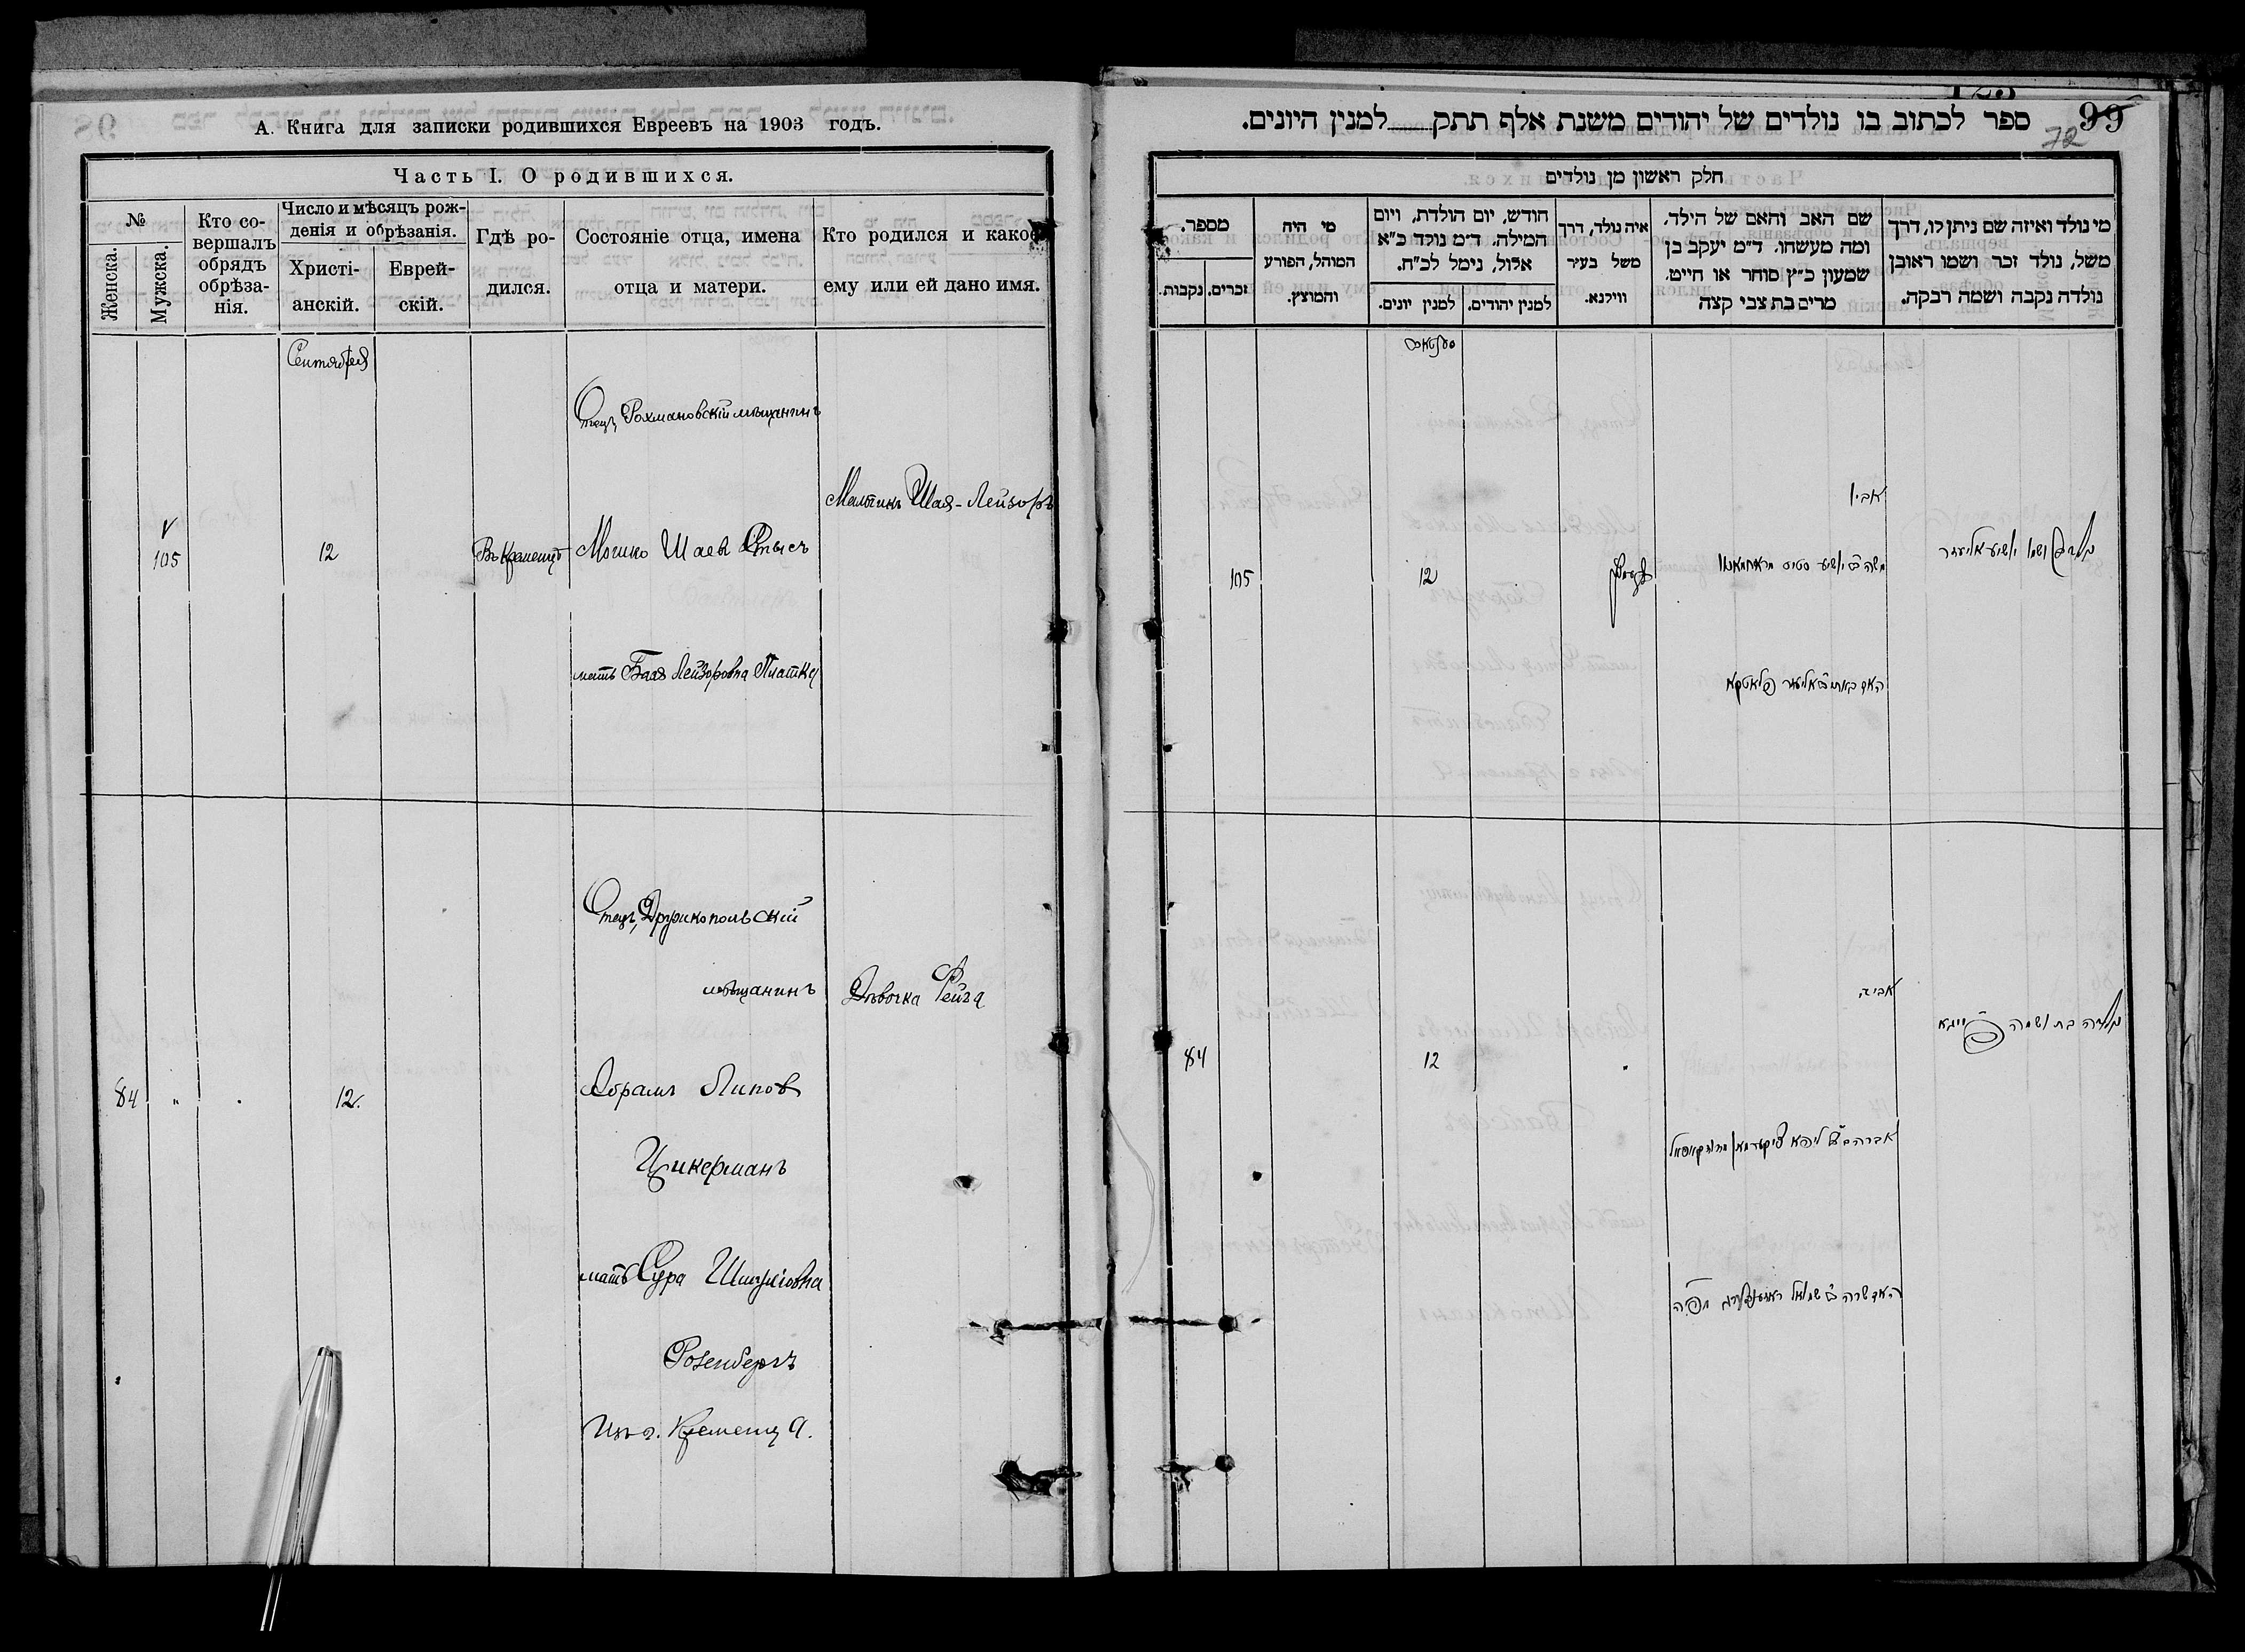 А. Книга для записки родившихся Евреевъ на 1903 годъ.
Часть I. О родившихся.
№
Женска.
Мужска.
Кто со-
вершалъ
обрядъ
обрѣза-
нія.
Число и мѣсяцъ рож-
денія и обрѣзанія.
Христі-
анскій.
Еврей-
скій.
Гдѣ ро-
дился.
Состояніе отца, имена
отца и матери.
Кто родился и какое
ему или ей дано имя.
Сентября
Отецъ Рохмановскій мѣщанинъ
Мальчикъ Шая-Лейзоръ
105
12
Въ Кременцѣ
Мошко Шаев
мать Бася Лейзоровна Платка
Отецъ Дружкопольскій
мѣщанинъ
Дѣвочка Фейга
84
12.
Абрамъ Липов
Цикерманъ
мать Сура Шмулiовна
Розенбергъ
Изъ г. Кременца.
99
72
ספר לכתוב בו נולדים של יהודים משנת אלף תתק למנין היונים.
חלק ראשון מן נולדים
מי נולד ואיזה שם ניתן לו, דרך
משל, נולד זכר ושמו ראובן
נולדה נקבה ושמה רבקה.
שם האב והאם של הילד.
ומה מעשהו. ד״מ יעקב בן
שמעון כ״ץ סוחר או חייט.
מרים בת צבי קצה
איה נולד, דרך
משל בעיר
ווילנא.
חודש, יום הולדת, ויום
המילה. ד״מ נולד כ״א
אלול, נימל לכ״ח.
למנין יהודים.
למנין יונים.
מי היה
המוהל, הפורע
והמוצץ.
מספר.
זכרים.
נקבות.
אביו
105
12
משה ב״ר יושיע
נולד בן ושמו יושיע אליעזר
האם באסי ב״ר אליעזר פלאטקא
אביה
נולדה בת ושמה פייגא
84
12
אברהם ב״ר ליפא ציקערמאן
האם שרה ב״ר שמואל ראזענבערג